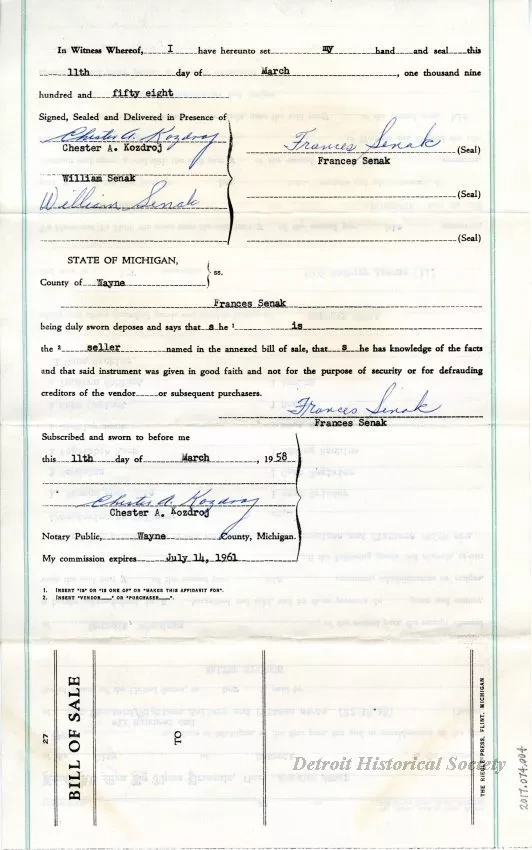 In Witness Whereof, I have hereunto set my hand and seal this
11th day of March, one thousand nine
hundred and fifty eight
Signed, Sealed and Delivered in Presence of
Chester A. Kozdroj
Chester A. Kozdroj
Frances Senak (Seal)
Frances Senak
William Senak
William Senak
(Seal)
(Seal)
STATE OF MICHIGAN,
ss.
County of Wayne
Frances Senak
being duly sworn deposes and says that s he ¹ is
the ² seller named in the annexed bill of sale, that s he has knowledge of the facts
and that said instrument was given in good faith and not for the purpose of security or for defrauding
creditors of the vendor or subsequent purchasers.
Frances Senak
Frances Senak
Subscribed and sworn to before me
this 11th day of March, 1958
Chester A. Kozdroj
Chester A. Kozdroj
Notary Public, Wayne County, Michigan.
My commission expires July 14, 1961
1. INSERT "IS" OR "IS ONE OF" OR "MAKES THIS AFFIDAVIT FOR".
2. INSERT "VENDOR" OR "PURCHASER".
27
BILL OF SALE
TO
THE RIEGLE PRESS, FLINT, MICHIGAN
Detroit Historical Society
2017.074.004